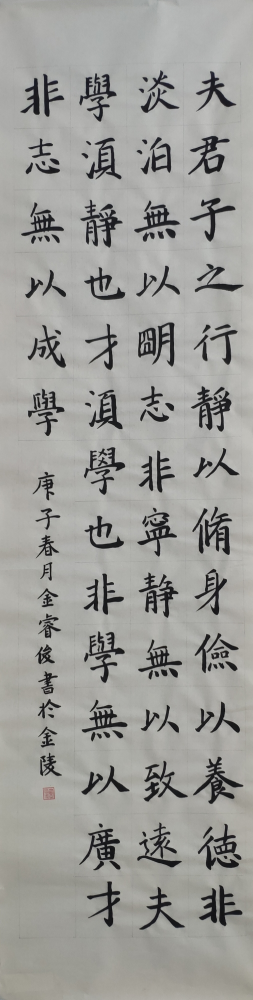 夫君子之行靜以脩身儉以養德非
淡泊無以朙志非寧靜無以致遠夫
學湏靜也才湏學也非學無以廣才
非志無以成學
庚子春月金睿俊書於金陵